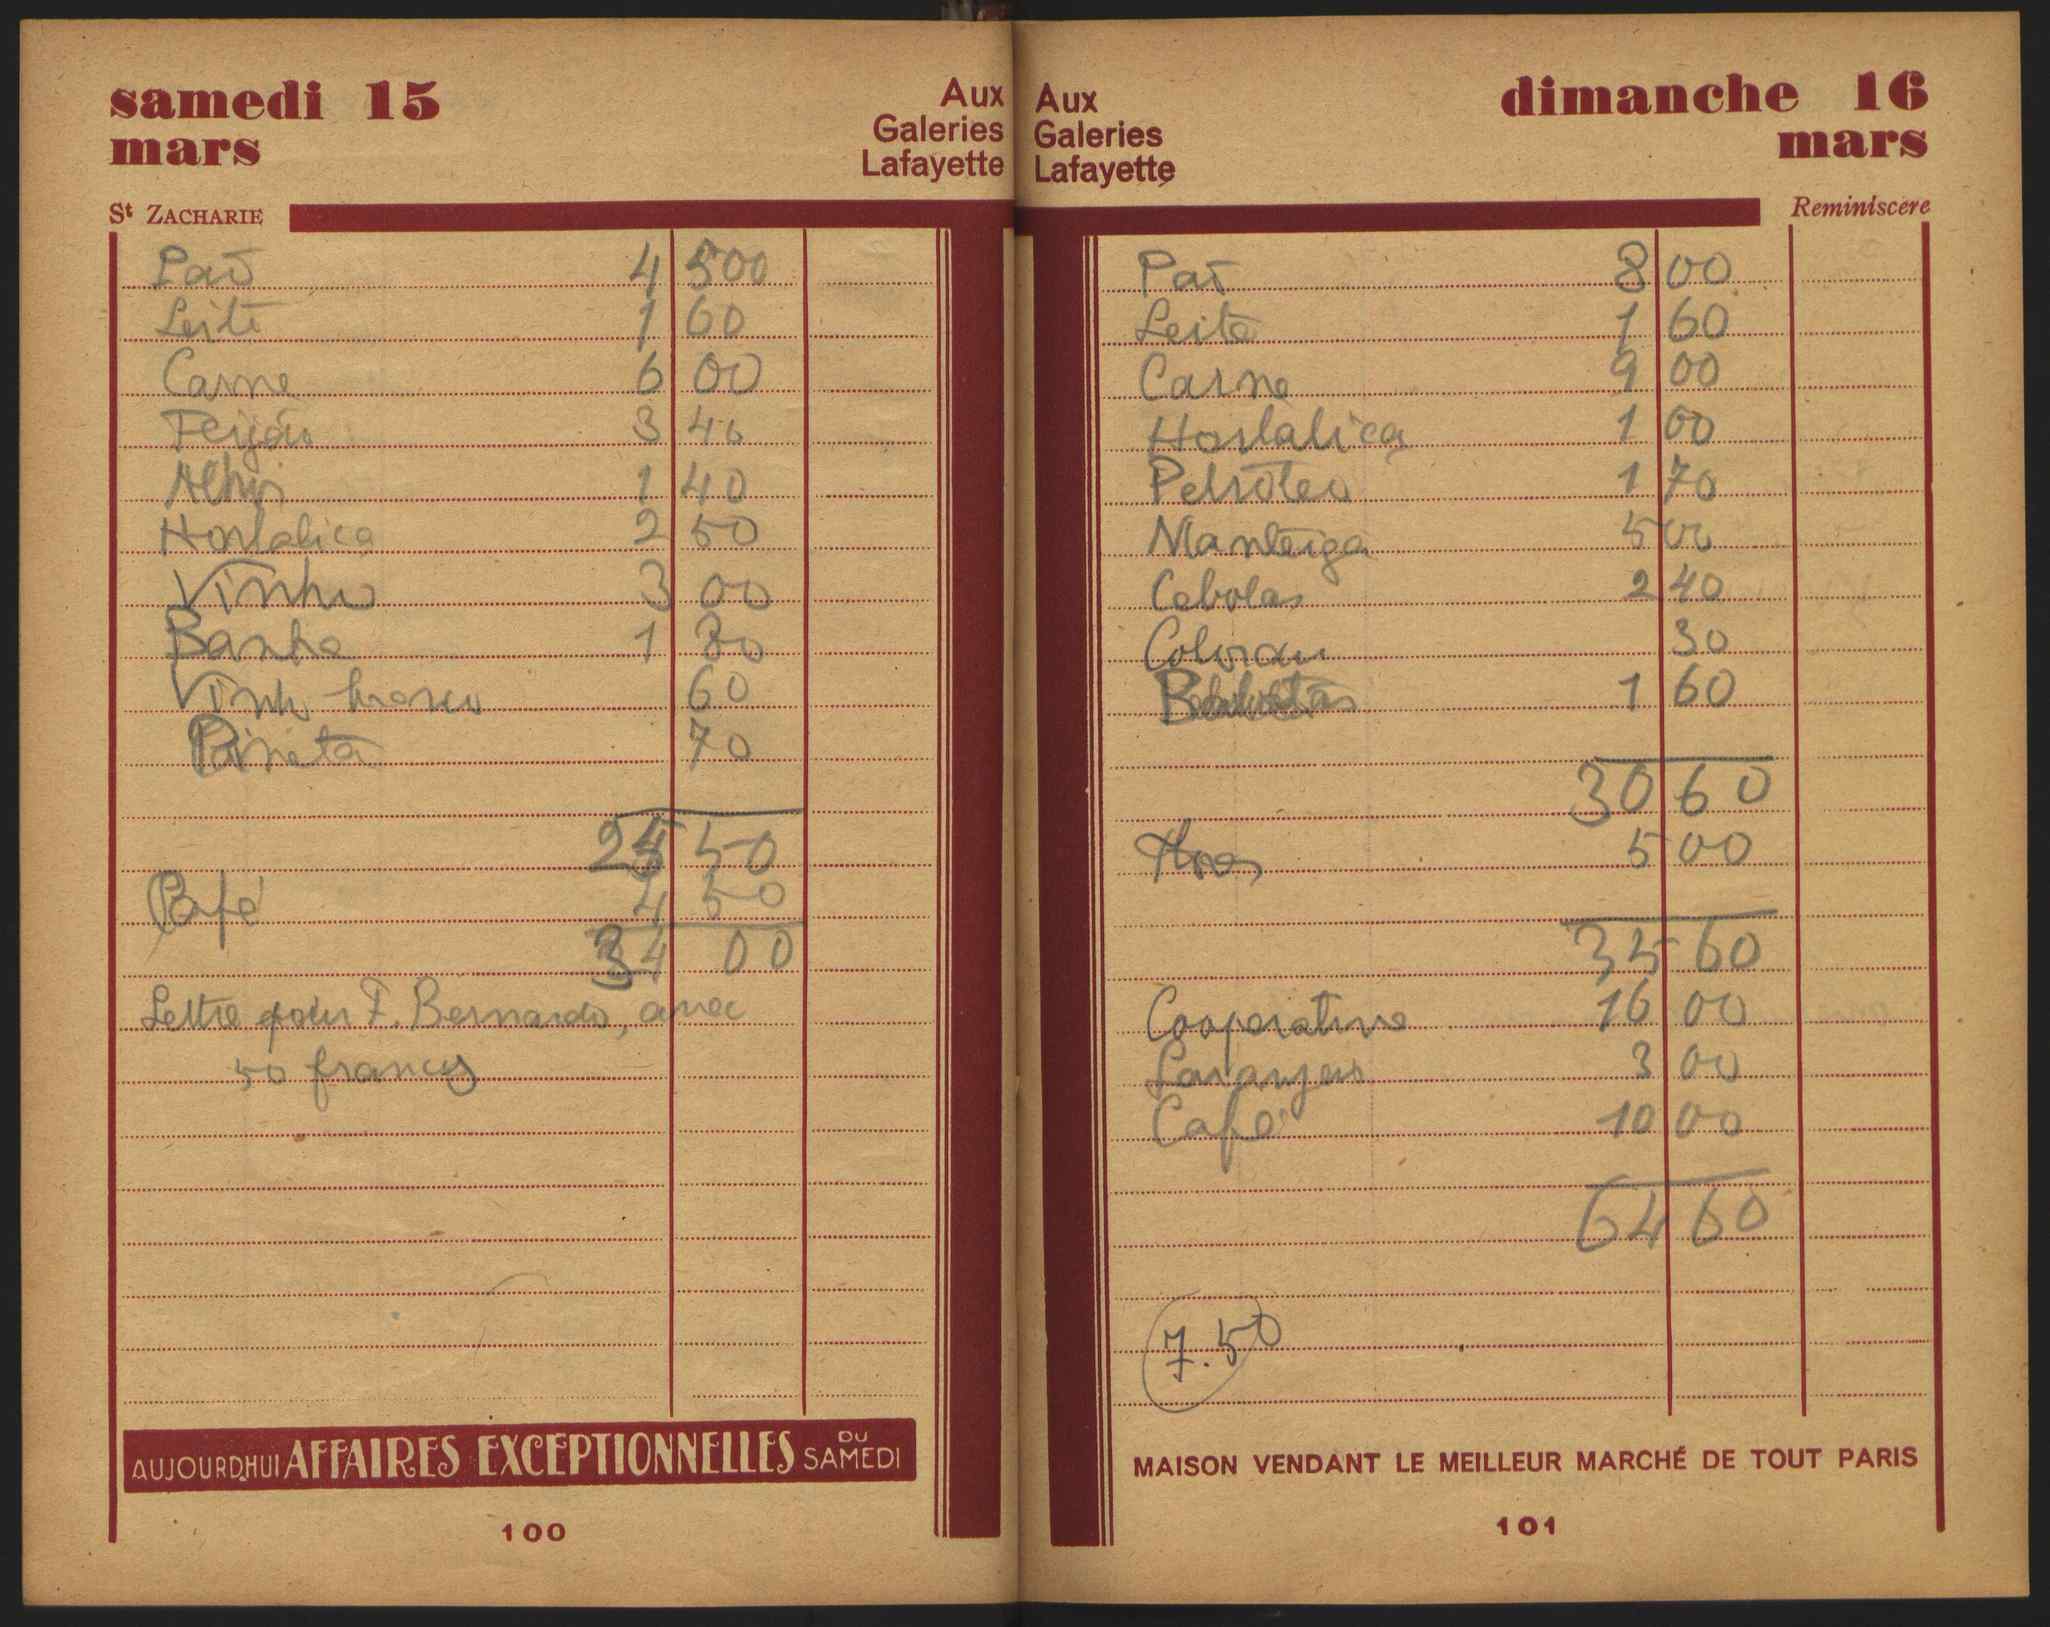 samedi 15
mars
Aux
Galeries
Lafayette
St ZACHARIE
Paõ 4 500
Leite 1 60
Carne 6 00
Feijão 3 40
Alhos 1 40
Hortalica 2 50
Vinho 3 00
Banha 1 80
Vinho branco 60
70
50
Café 4 50
34 00
Lettre pour F. Bernardo, avec
50 francs
AUJOURD'HUI AFFAIRES EXCEPTIONNELLES DU SAMEDI
100
Aux
Galeries
Lafayette
dimanche 16
mars
Reminiscere
Paõ 8 00
Leite 1 60
Carne 9 00
Hortalica 1 00
Petróleo 1 70
Manteiga 5 00
Cebolas 2 40
Colorau 30
1 60
30 60
5 00
35 60
Cooperative 16 00
Laranjas 3 00
Café 10 00
64 60
7.50
MAISON VENDANT LE MEILLEUR MARCHÉ DE TOUT PARIS
101